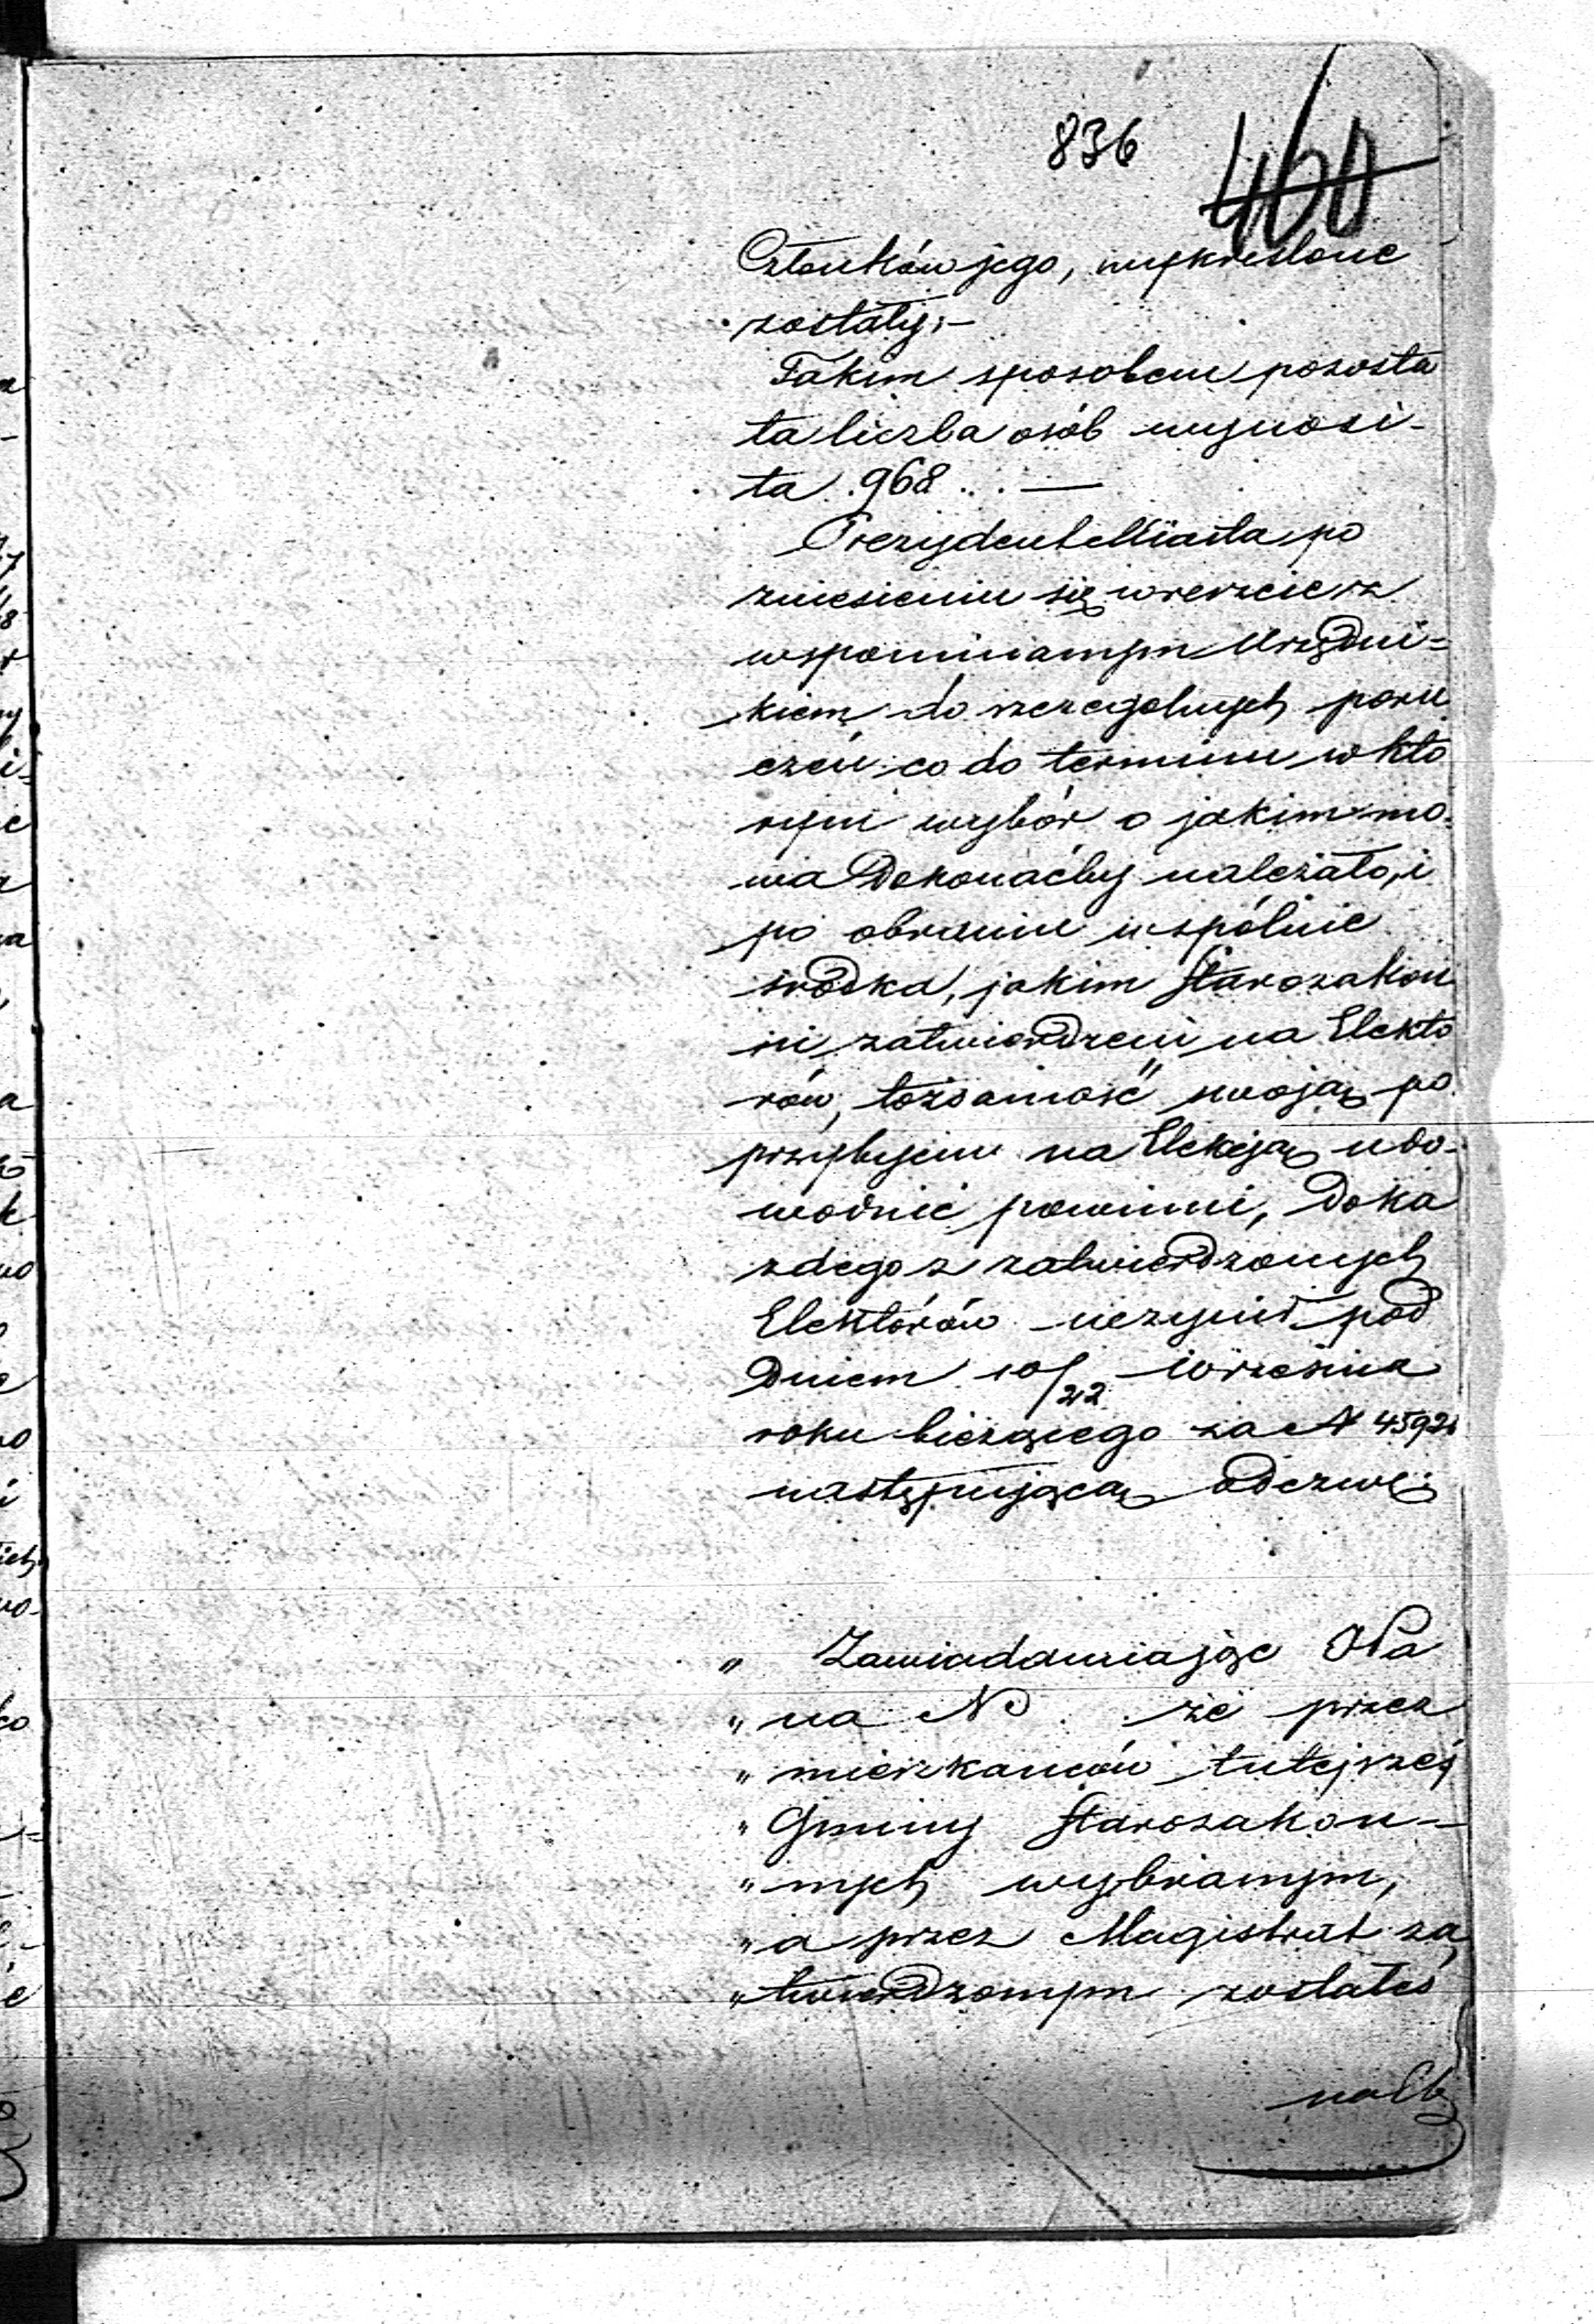 836
460
Członków jego, wykreślone
zostały.—
Takim sposobem pozosta
ła liczba osób wynosi-
ła 968...—
Prezydent Miasta po
zniesieniu się wreszcie z
wspominanym Urzędni=
kiem do szczególnych poru
czeń co do terminu w któ
rym wybór o jakim mo-
wa Dokonaćby należało, i
po obraniu wspólnie
środka, jakim Starozakon
ni zatwierdzeni na Elekto
rów, tożsamość swoją po
przybyciu na Elekcją udo-
wodnić powinni, Do ka
żdego z zatwierdzonych
Elektorów uczynił pod
Dniem 10/22 Września
roku bieżącego za N 4592
następującą Odezwę:
" Zawiadamiając WPa
" na N że przez
" mieszkańców tutejszej
" Gminy Starozakon-
" nych wybranym,
" a przez Magistrat za
" twierdzonym zostałeś
na El